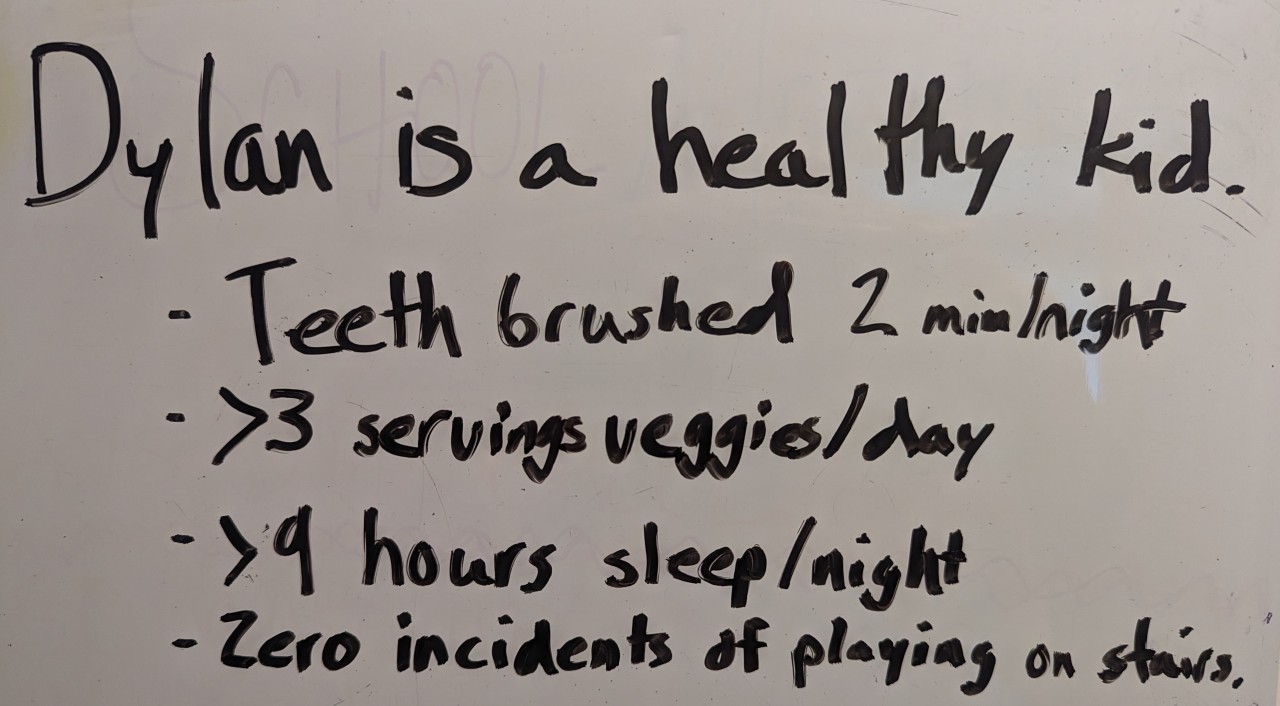 Dylan is a healthy kid.
- Teeth brushed 2 min/night
- >3 servings veggies/day
- >9 hours sleep/night
- Zero incidents of playing on stairs.